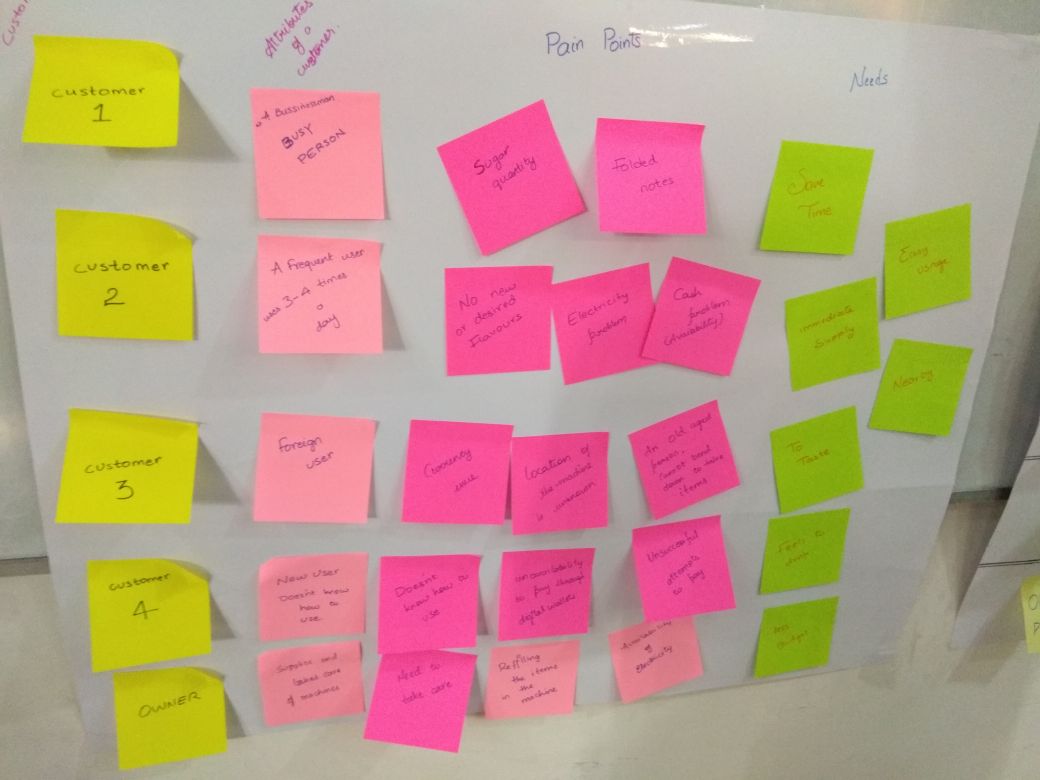 Attributes
of a
customer.
Pain Points
Needs
customer
1
A Bussinesman
BUSY
PERSON
Sugar
quantity
Folded
notes
Save
Time
customer
2
A frequent user
uses 3-4 times
a
day
No new
or desired
Flavours
Electricity
problem
Cash
problem
(Availability)
immediate
Supply
Easy
usage
Nearby
customer
3
Foreign
user
Currency
issue
Location of
the machine
is unknown
An old aged
person,
cannot bend
down to take
items
To
Taste
customer
4
New user
Doesn't know
how to
use
Doesn't
know how to
use
unavailability
to pay through
digital wallets
Unsuccessful
attempts
to pay
Feels to
OWNER
Supplies and
takes care
of machines
Need to
take care
Refilling
the items
in the
machine
Availability
of
Electricity
less
Budget